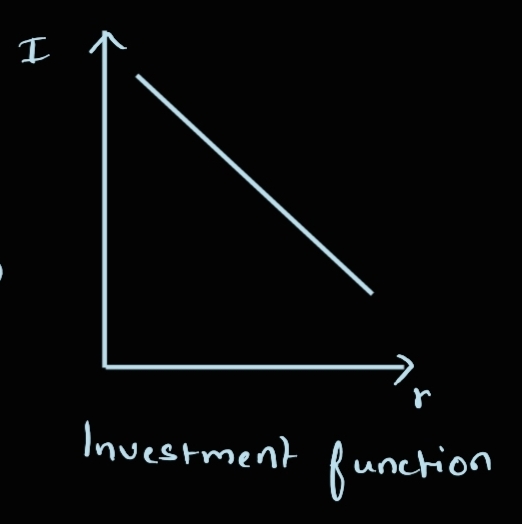 I
r
Investment function